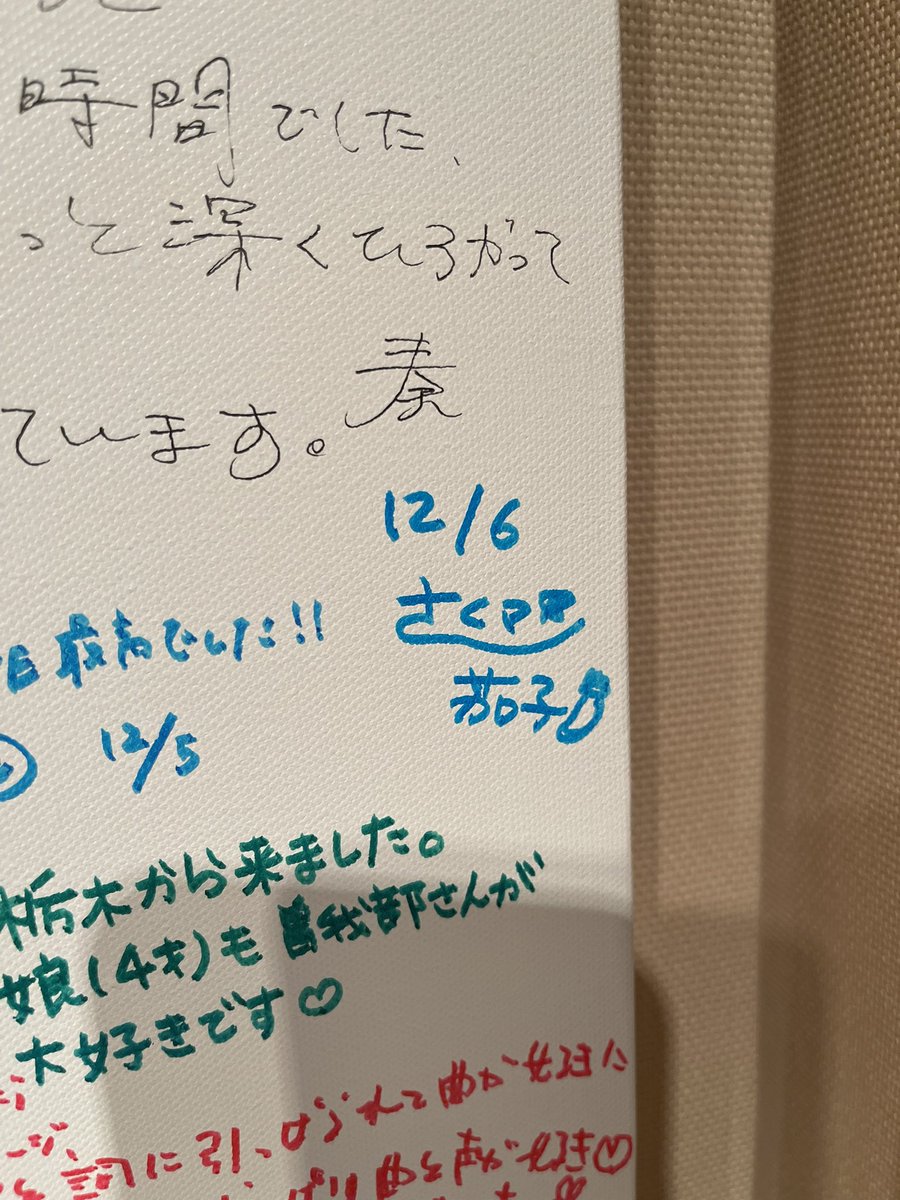 時間でした、
って深くひろがって
ています。奏
12/6
最高でした!!
さくマ
茄子
12/5
栃木から来ました。
娘(4才)も曽我部さんが
大好きです♡
詞に引っぱられて曲が好きに
曲と声が好き♡